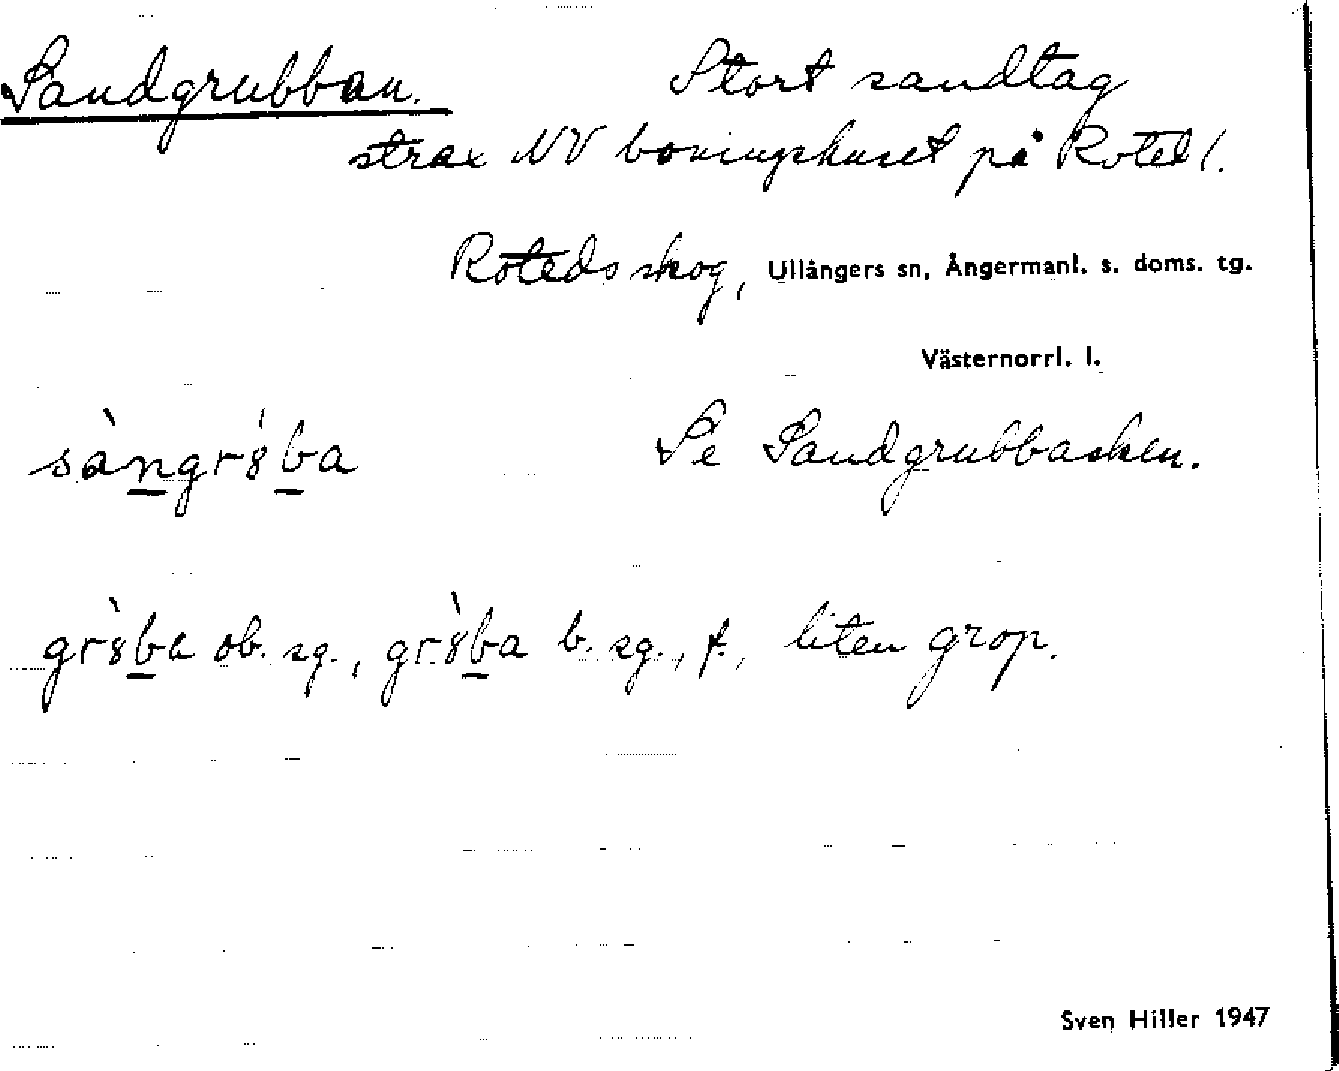 Sandgrubban. Stort sandtag
strax NV boningshuset på Roted 1.
Roteds skog, Ullångers sn, Ångermanl. s. doms. tg.
Västernorrl. l.
sàngr8́ba Se Sandgrubbasken.
gr8̀ba ob. sg., gr8̀ba b. sg., f., liten grop.
Sven Hiller 1947